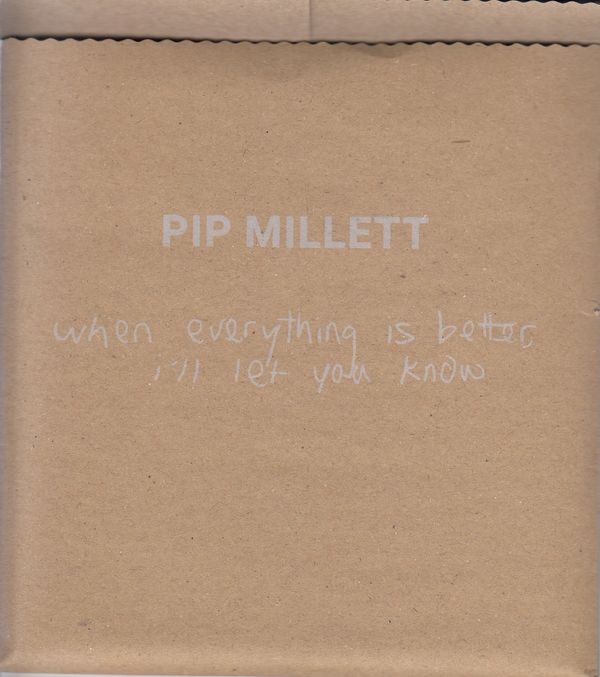 PIP MILLETT
when everything is better
i'll let you know